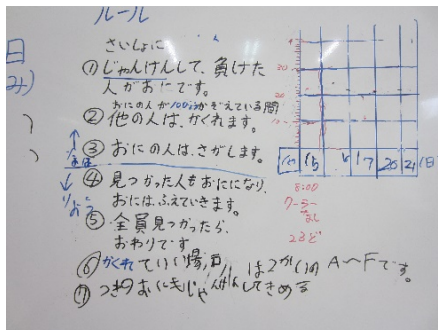 ルール
さいしょに
① じゃんけんして、負けた
人がおにです。
おにの人が100びょうかぞえている間
② 他の人は、かくれます。
③ おにの人は、さがします。
④ 見つかった人もおにになり、
おにはふえていきます。
⑤ 全員見つかったら、
おわりです
⑥ かくれていい場所は2かいの A〜Fです。
⑦ つぎのおにもじゃんけんしてきめる
日
み)
30
20
15
17
20
21
(日)
8:00
クーラー
なし
23ど